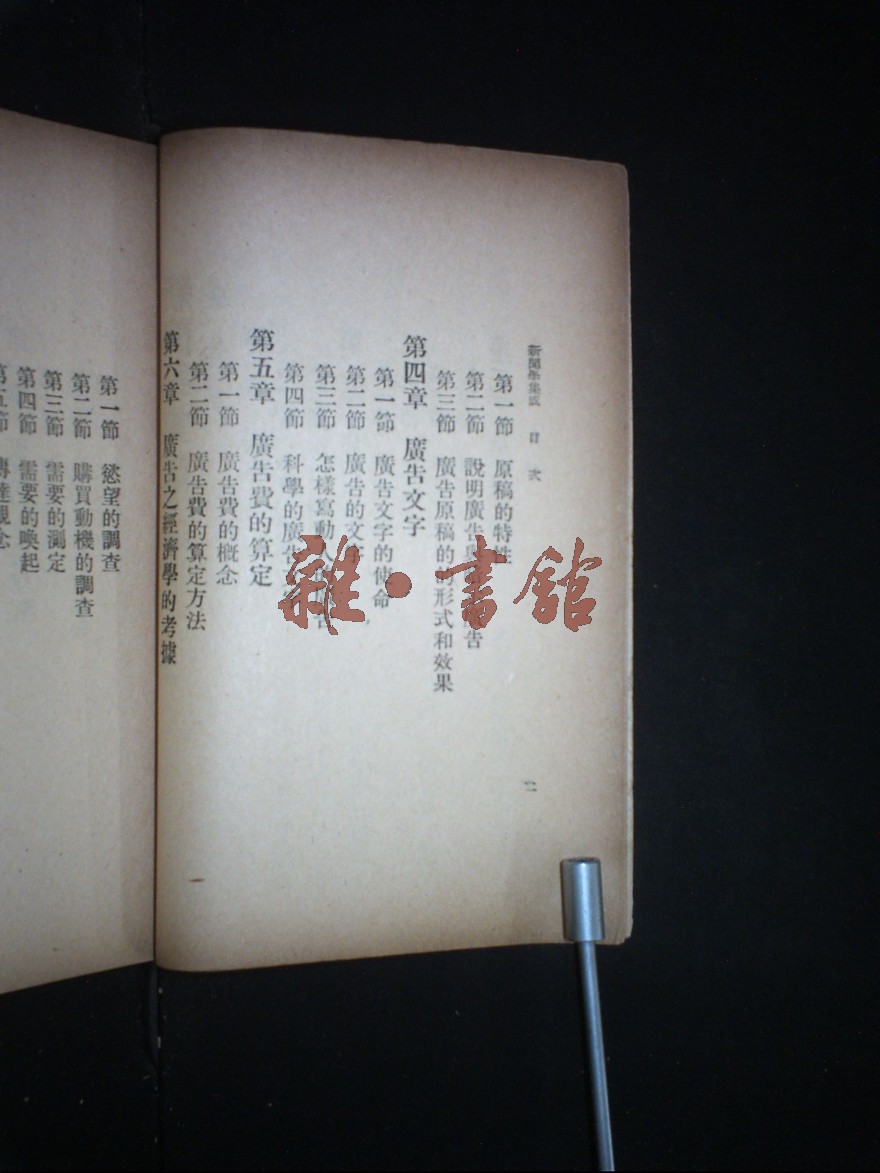 新聞學集成 目次
第一節 原稿的特性
第二節 說明廣告與 告
第三節 廣告原稿的的形式和效果
第四章 廣告文字
第一節 廣告文字的使命
第二節 廣告的文字
第三節 怎樣寫動人的 告
第四節 科學的廣告
第五章 廣告費的算定
第一節 廣告費的概念
第二節 廣告費的算定方法
第六章 廣告之經濟學的考據
二
第一節 慾望的調查
第二節 購買動機的調查
第三節 需要的測定
第四節 需要的喚起
第五節 傳達觀念
雜·書館